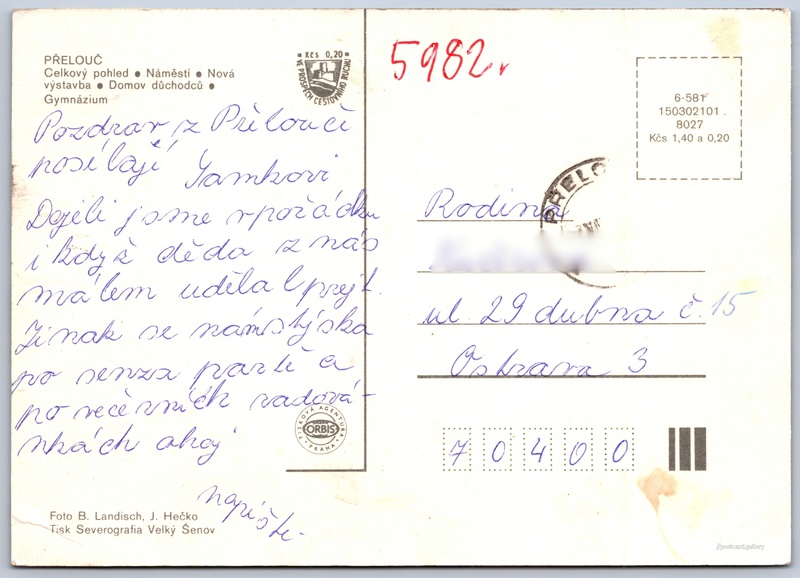 PŘELOUČ
Celkový pohled ● Náměstí ● Nová
výstavba ● Domov důchodců ●
Gymnázium
Kčs 0,20
VE PROSPĚCH CESTOVNÍHO RUCHU
Pozdrav z Přelouče
posílají Jamkovi
Dojeli jsme vpořádku
i když děda z nás
málem udělal prejt.
Jinak se nám stýská
po senza partě a
po večerních radová-
nkách ahoj
napište.
TISKOVÁ AGENTURA
ORBIS
PRAHA
Foto B. Landisch, J. Hečko
Tisk Severografia Velký Šenov
5982
6-581
150302101
8027
Kčs 1,40 a 0,20
PŘELO
Rodina
ul 29 dubna č. 15
Ostrava 3
70400
postcard.gallery